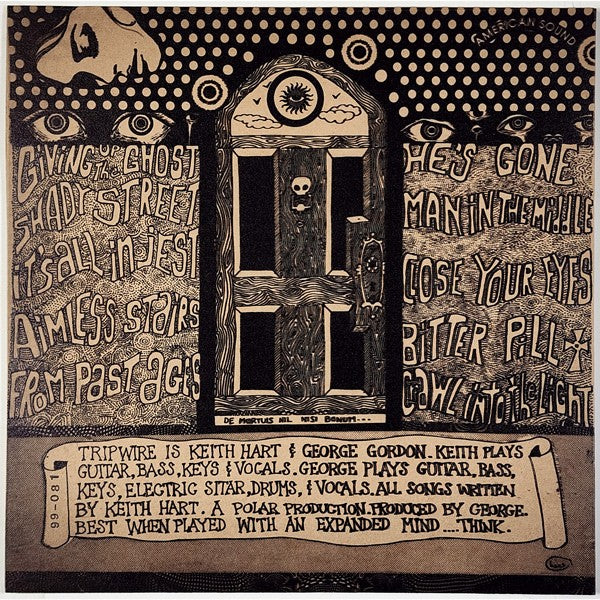 AMERICAN SOUND
GIVING UP THE GHOST
SHADY STREET
it's all in jest
AIMLESS STAIRS
FROM PAST AGES
HE'S GONE
MAN IN THE MIDDLE
CLOSE YOUR EYES
BITTER PILL
CAWL INTO THE LIGHT
DE MORTUIS NIL NISI BONUM---
TRIPWIRE IS KEITH HART & GEORGE GORDON. KEITH PLAYS
GUITAR, BASS, KEYS & VOCALS. GEORGE PLAYS GUITAR, BASS,
KEYS, ELECTRIC SITAR, DRUMS, & VOCALS. ALL SONGS WRITTEN
BY KEITH HART. A POLAR PRODUCTION. PRODUCED BY GEORGE.
BEST WHEN PLAYED WITH AN EXPANDED MIND....THINK.